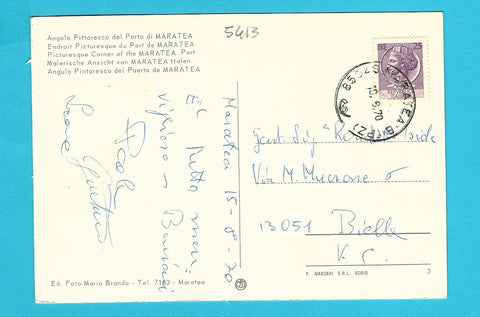 Angolo Pittoresco del Porto di MARATEA
Endroit Picturesque du Port de MARATEA
Picturesque Corner of the MARATEA Port
Malerische Ansicht von MARATEA Hafen
Angulo Pintaresco del Puerto de MARATEA
5413
Maratea 15-8-70
È tutto
Baci
Paola
85046 MARATEA (PZ)
.8.70
Gent. Sig.
Via M.
13051 Biella
V. C.
Ed. Foto Mario Brando - Tel. 7183 - Maratea
P. MARZARI S.R.L. SCHIO
5